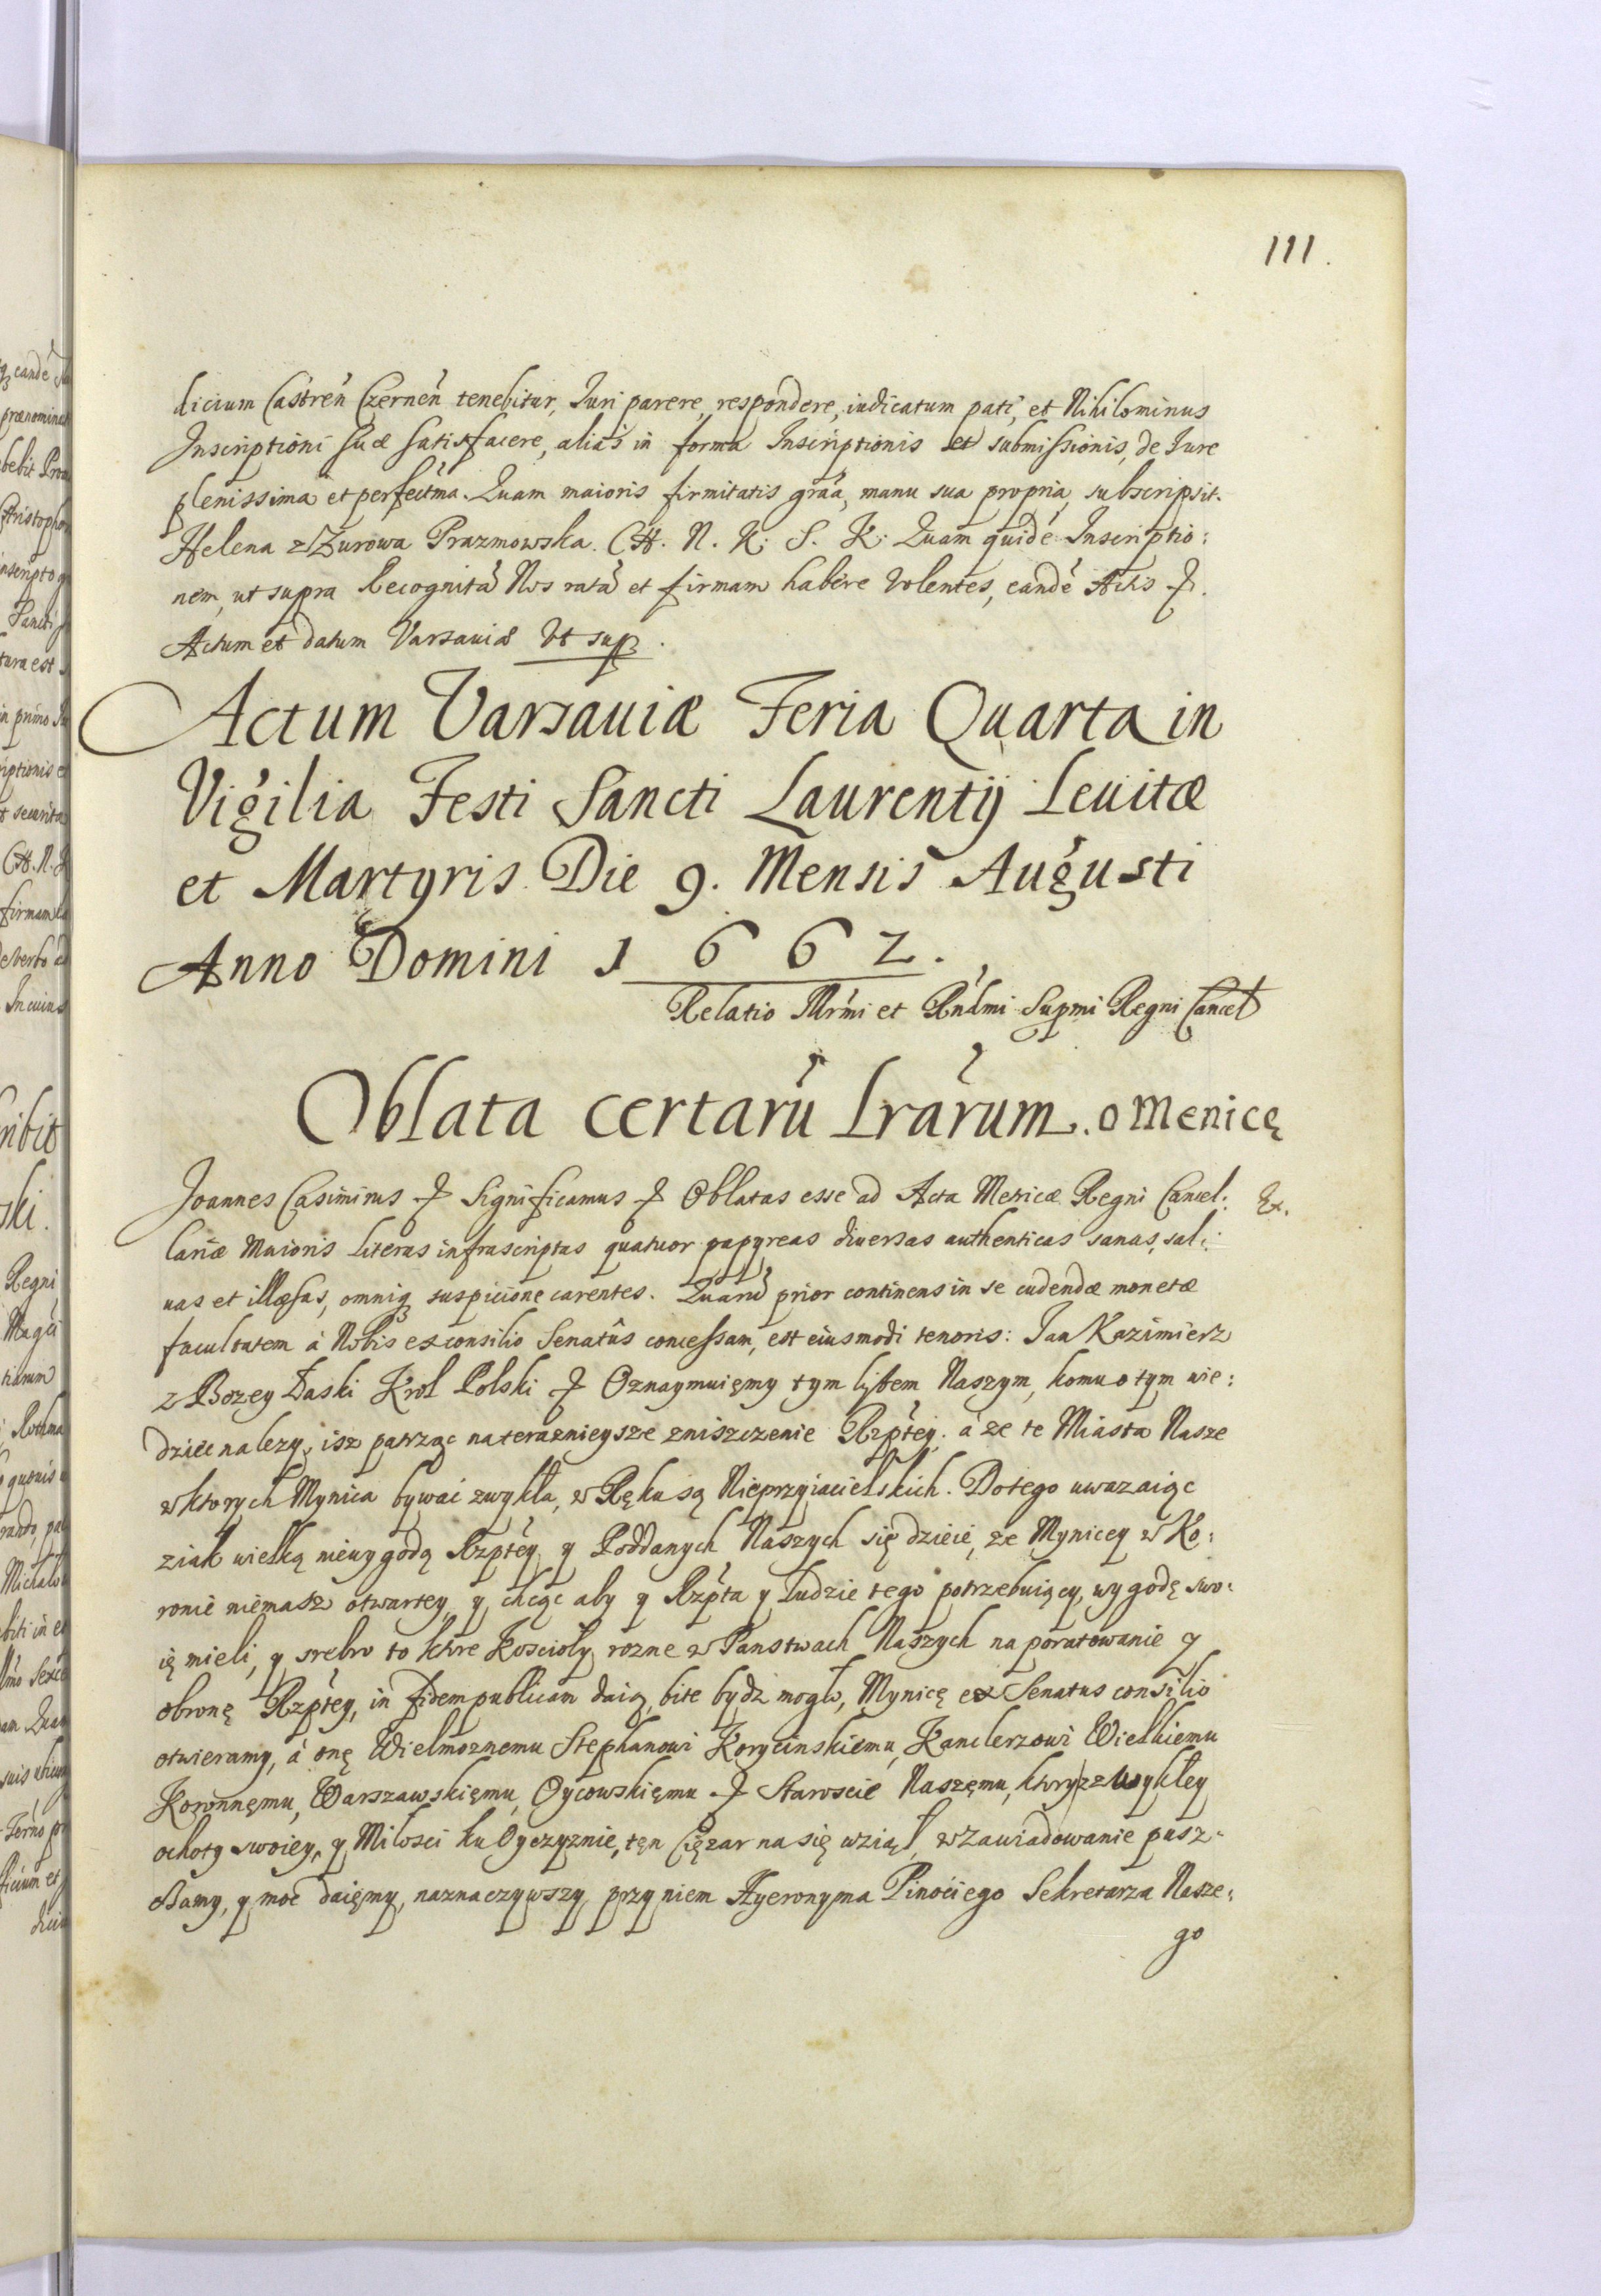 111.
dicium Castren̄ Czernen̄ tenebitur, Iuri parere, respondere, iudicatum pati, et Nihilominus
Inscriptioni suæ satisfacere, alias in forma Inscriptionis et submissionis, de Iure
plenissima et perfectma. Quam maioris firmitatis graā, manu sua propria, subscripsit.
Helena z Zurowa Prazmowska. C H. N. K. S. K. Quam quidē Inscriptio:
nem, ut supra Recognitā Nos ratā et firmam habere volentes, eandē Actis
Actum et datum Varsauiæ Ut sup.
Actum Varsauiæ Feria Quarta in
Vigilia Festi Sancti Laurentij Leuitæ
et Martyris Die 9. Mensis Augusti
Anno Domini 1662.
Relatio Illrmi et Rndmi Supmi Regni Cancel
Oblata certarū Lrārum. o Menicę
Joannes Casimirus Significamus Oblatas esse ad Acta Metricæ Regni Cancel: Ex.
lariæ Maioris Literas infrascriptas quatuor papyreas diuersas authenticas sanas, sal:
uas et illæsas, omniq; suspicione carentes. Quarū prior continens in se cudendæ monetæ
facultatem à Nobis ex consilio Senatûs concessam, est eiusmodi tenoris: Jan Kazimierz
z Bozey Łaski Krol Polski Oznaymuięmy tym lystem Naszym, komu o tym wie:
dziec nalezy, isz patrząc na teraznieysze zniszczenie Rzptey. á ze te Miasta Nasze
w ktorych Mynica bywac zwykła, w Ręku są Nieprzyiacielskich. Do tego uwazaiąc
z iak wielką niewygodą Rzptey y Poddanych Naszych się dzieie, ze Mynicey w Ko:
ronie niemasz otwartey, y chcąc aby y Rzpta y ludzie tego potrzebuiący, wygodę swo:
ię mieli, y srebro to ktore Koscioły rozne w Panstwach Naszych na poratowanie y
obronę Rzptey, in fidem publicam daią, bite bydz mogło, Mynicę ex Senatus consilio
otwieramy, á onę Wielmoznemu Stephanowi Korycinskiemu, Kanclerzowi Wielkiemu
Koronnęmu, Warszawskięmu, Oycowskięmu Staroscie Naszęmu, ktory z zwykłey
ochoty swoiey, y Milosci ku Oyczyznie, tęn Cięzar na się wziął, w Zawiadowanie pusz:
czamy, y moc daięmy, naznaczywszy przy niem Hyeronyma Pinociego Sekretarza Nasze:
go